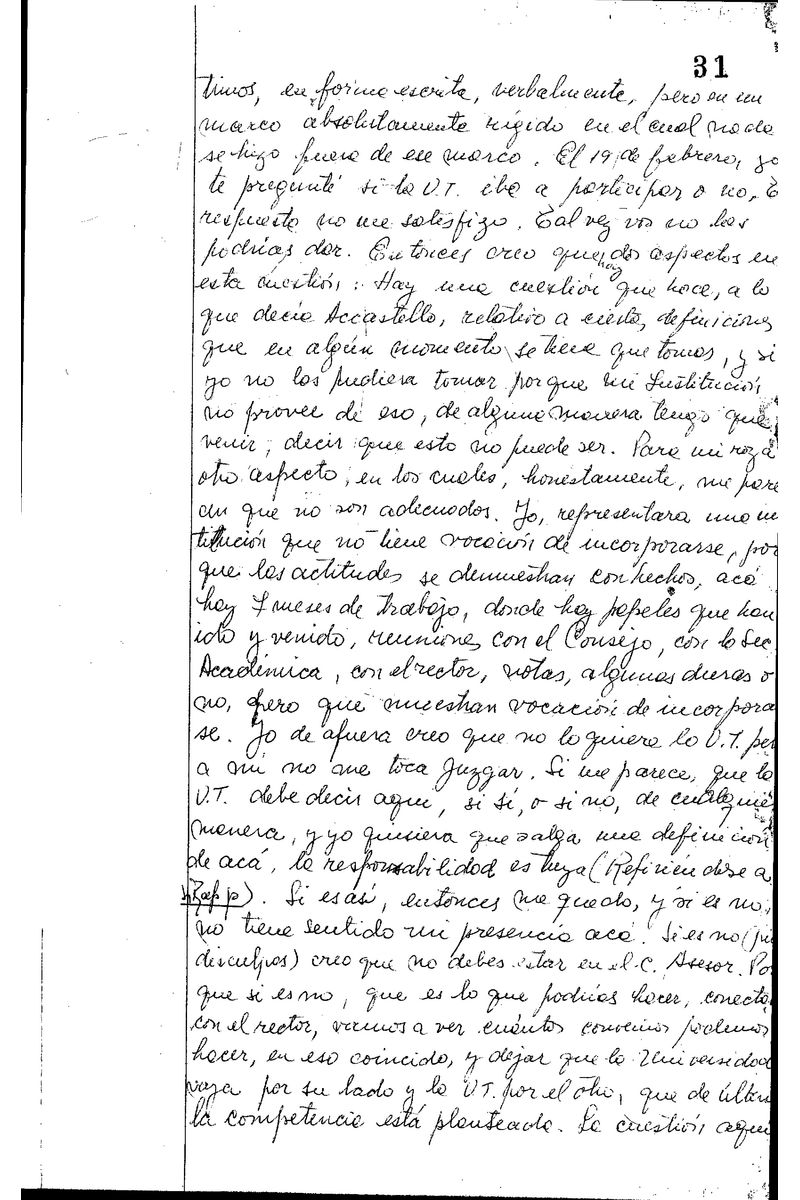 31
timos, en forma escrita, verbalmente, pero en un
marco absolutamente rígido en el cual nada
se hizo fuera de ese marco. El 19 de febrero, yo
te pregunté si la U.T. iba a participar o no,
respuesta no me satisfizo. Tal vez vos no las
podrías dar. Entonces creo que hay dos aspectos en
esta cuestión: Hay una cuestión que hace, a lo
que decía Accastello, relativo a ciertas definiciones
que en algún momento se tiene que tomar, y si
yo no las pudiera tomar porque mi Institución
no provee de eso, de alguna manera tengo que
venir, decir que esto no puede ser. Para mi roza
otro aspecto, en los cuales, honestamente, me pare
cen que no son adecuados. Yo, representara una in
titución que no tiene vocación de incorporarse, por
que las actitudes se demuestran con hechos, acá
hay 7 meses de trabajo, donde hay papeles que han
ido y venido, reuniones con el Consejo, con la Sec
Académica, con el rector, notas, algunas duras o
no, pero que muestran vocación de incorpora
se. Yo de afuera creo que no lo quiere la U.T. per
a mí no me toca juzgar. Si me parece, que la
U.T. debe decir aquí, si sí, o si no, de cualquie
manera, y yo quisiera que salga una definición
de acá, la responsabilidad es tuya (Refiriéndose a
Zapp). Si es así, entonces me quedo, y si es no,
no tiene sentido mi presencia acá. Si es no (
disculpas) creo que no debes estar en el C. Asesor. Po
que si es no, que es lo que podrías hacer, conecta
con el rector, vamos a ver cuántos convenios podemos
hacer, en eso coincido, y dejar que la Universidad
vaya por su lado y la U.T. por el otro, que de últim
la competencia está planteada. La cuestión aquí